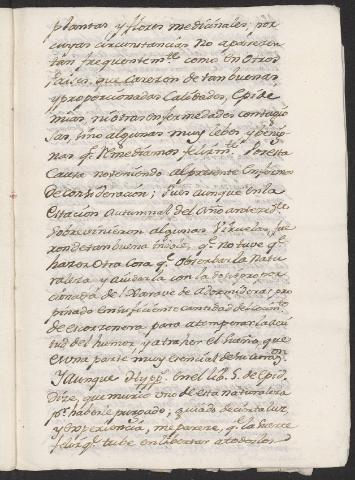 plantas y flores medicinales; por
cuyas circunstancias No aparesen
tan frequentem.te como en otros
Paises, que carecen de tan buenas
y proporcionadas Calidades, Epide
mias, ni otras enfermedades contagio
sas, sino algunas muy lebes y benig
nas q.e Remediamos felizm.te Por esta
Causa no teniendo al presente Enfermo
De consideración; Pues aunque en la
estacion Autumnal del Año antezed.te
Sobrevinieron algunas Viruelas, fue
ron de tan buena índole, q.e No tuve q.e
hazer otra Cosa q.e observar la Natu
raleza y aiudarla con la dosis propor
cionada de el Xarave de Adormideras pro
pinado en suficiente cantidad de cocim.to
de escorzonera para atemperar la acri
tud del humor, y atraher el sueño, que
es una parte muy esencial de su curac.on
Y Aunque Hypp. en el lib. 5. de Epid
Dize, que murio uno de esta naturaleza
p.r haberle purgado, guiado de esta luz
y experiencia, me parece, q.e la suerte
feliz q.e tube en libertar a todos los